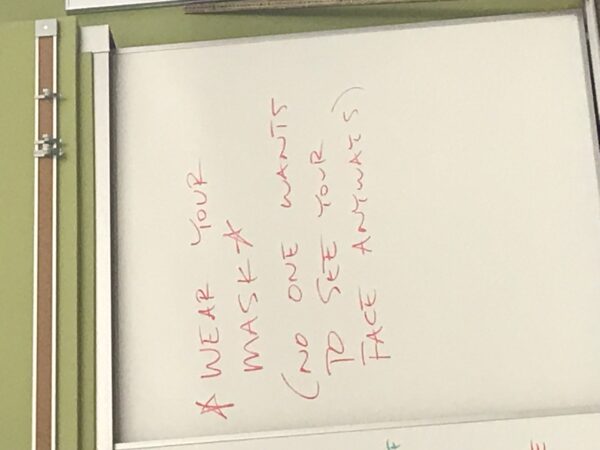 ☆ WEAR YOUR
MASK ☆
(NO ONE WANTS
TO SEE YOUR
FACE ANYWAYS)